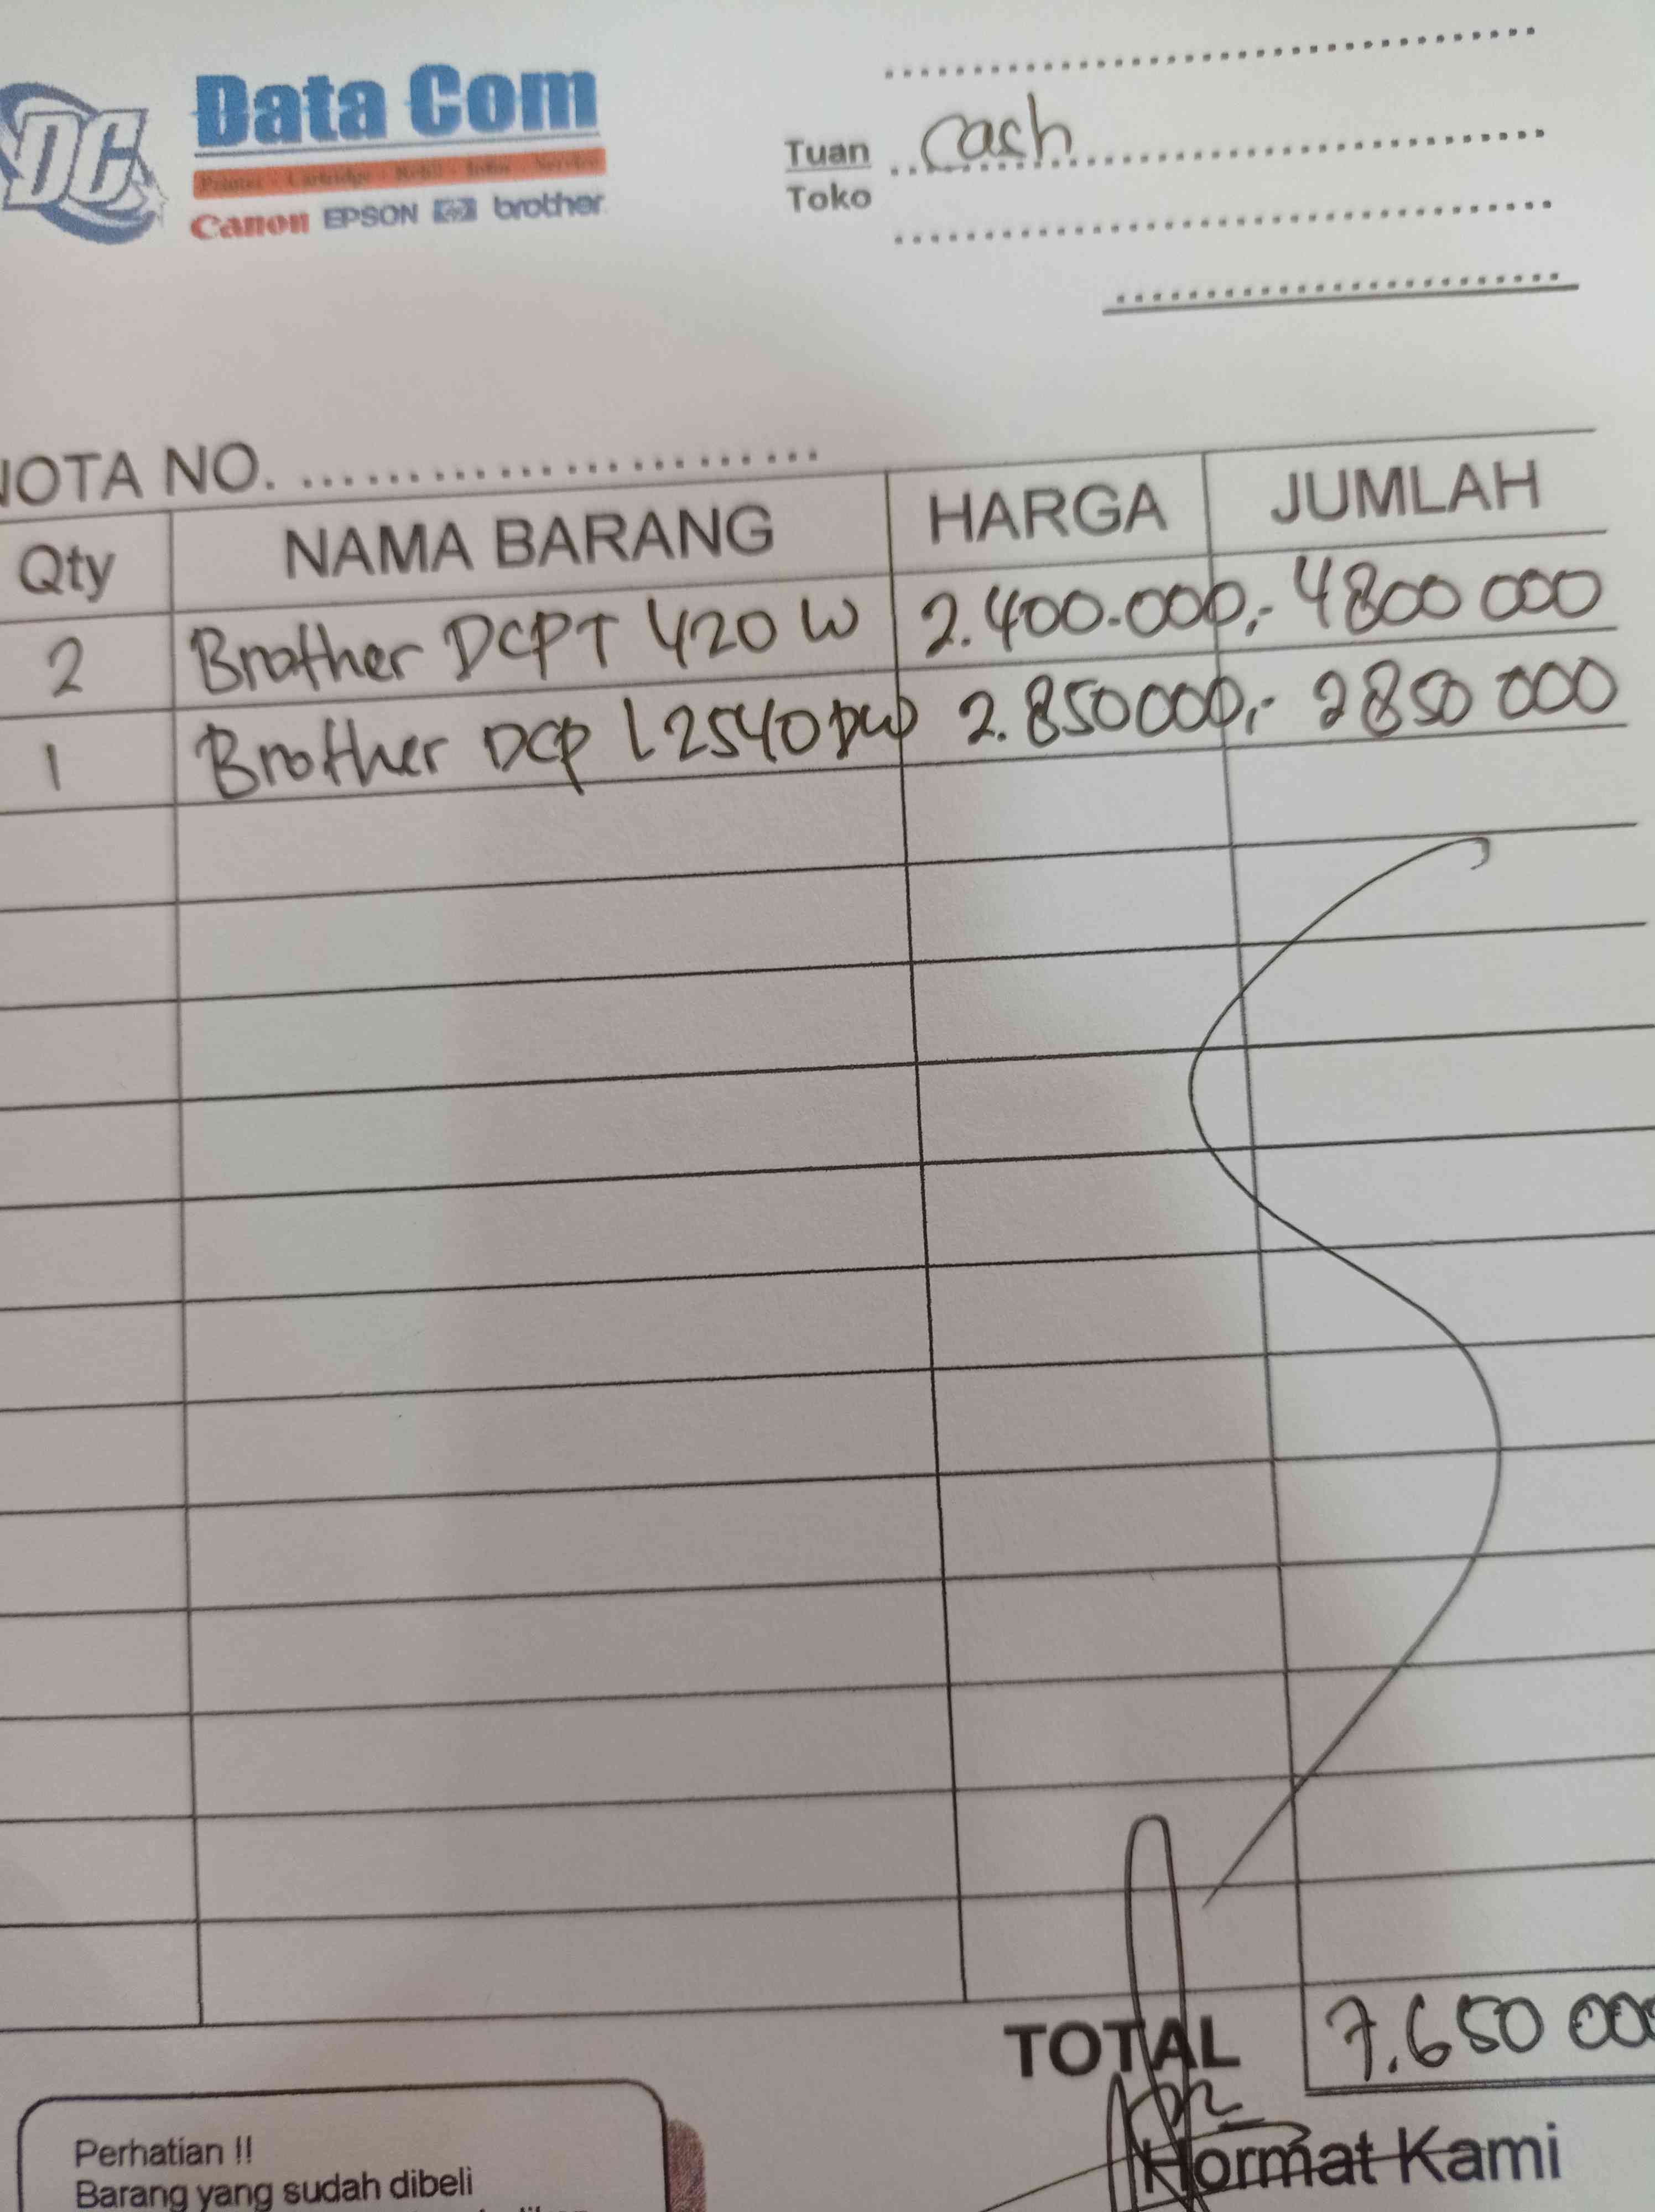 DC
Data Com
Printer - Cartridge - Refill - Infus - Service
Canon EPSON hp brother
Tuan Cash
Toko
NOTA NO.
Qty NAMA BARANG HARGA JUMLAH
2 Brother DCPT 420 W 2.400.000,- 4800 000
1 Brother DCP L2540DW 2.850000,- 2850 000
TOTAL 7.650 000
Hormat Kami
Perhatian !!
Barang yang sudah dibeli